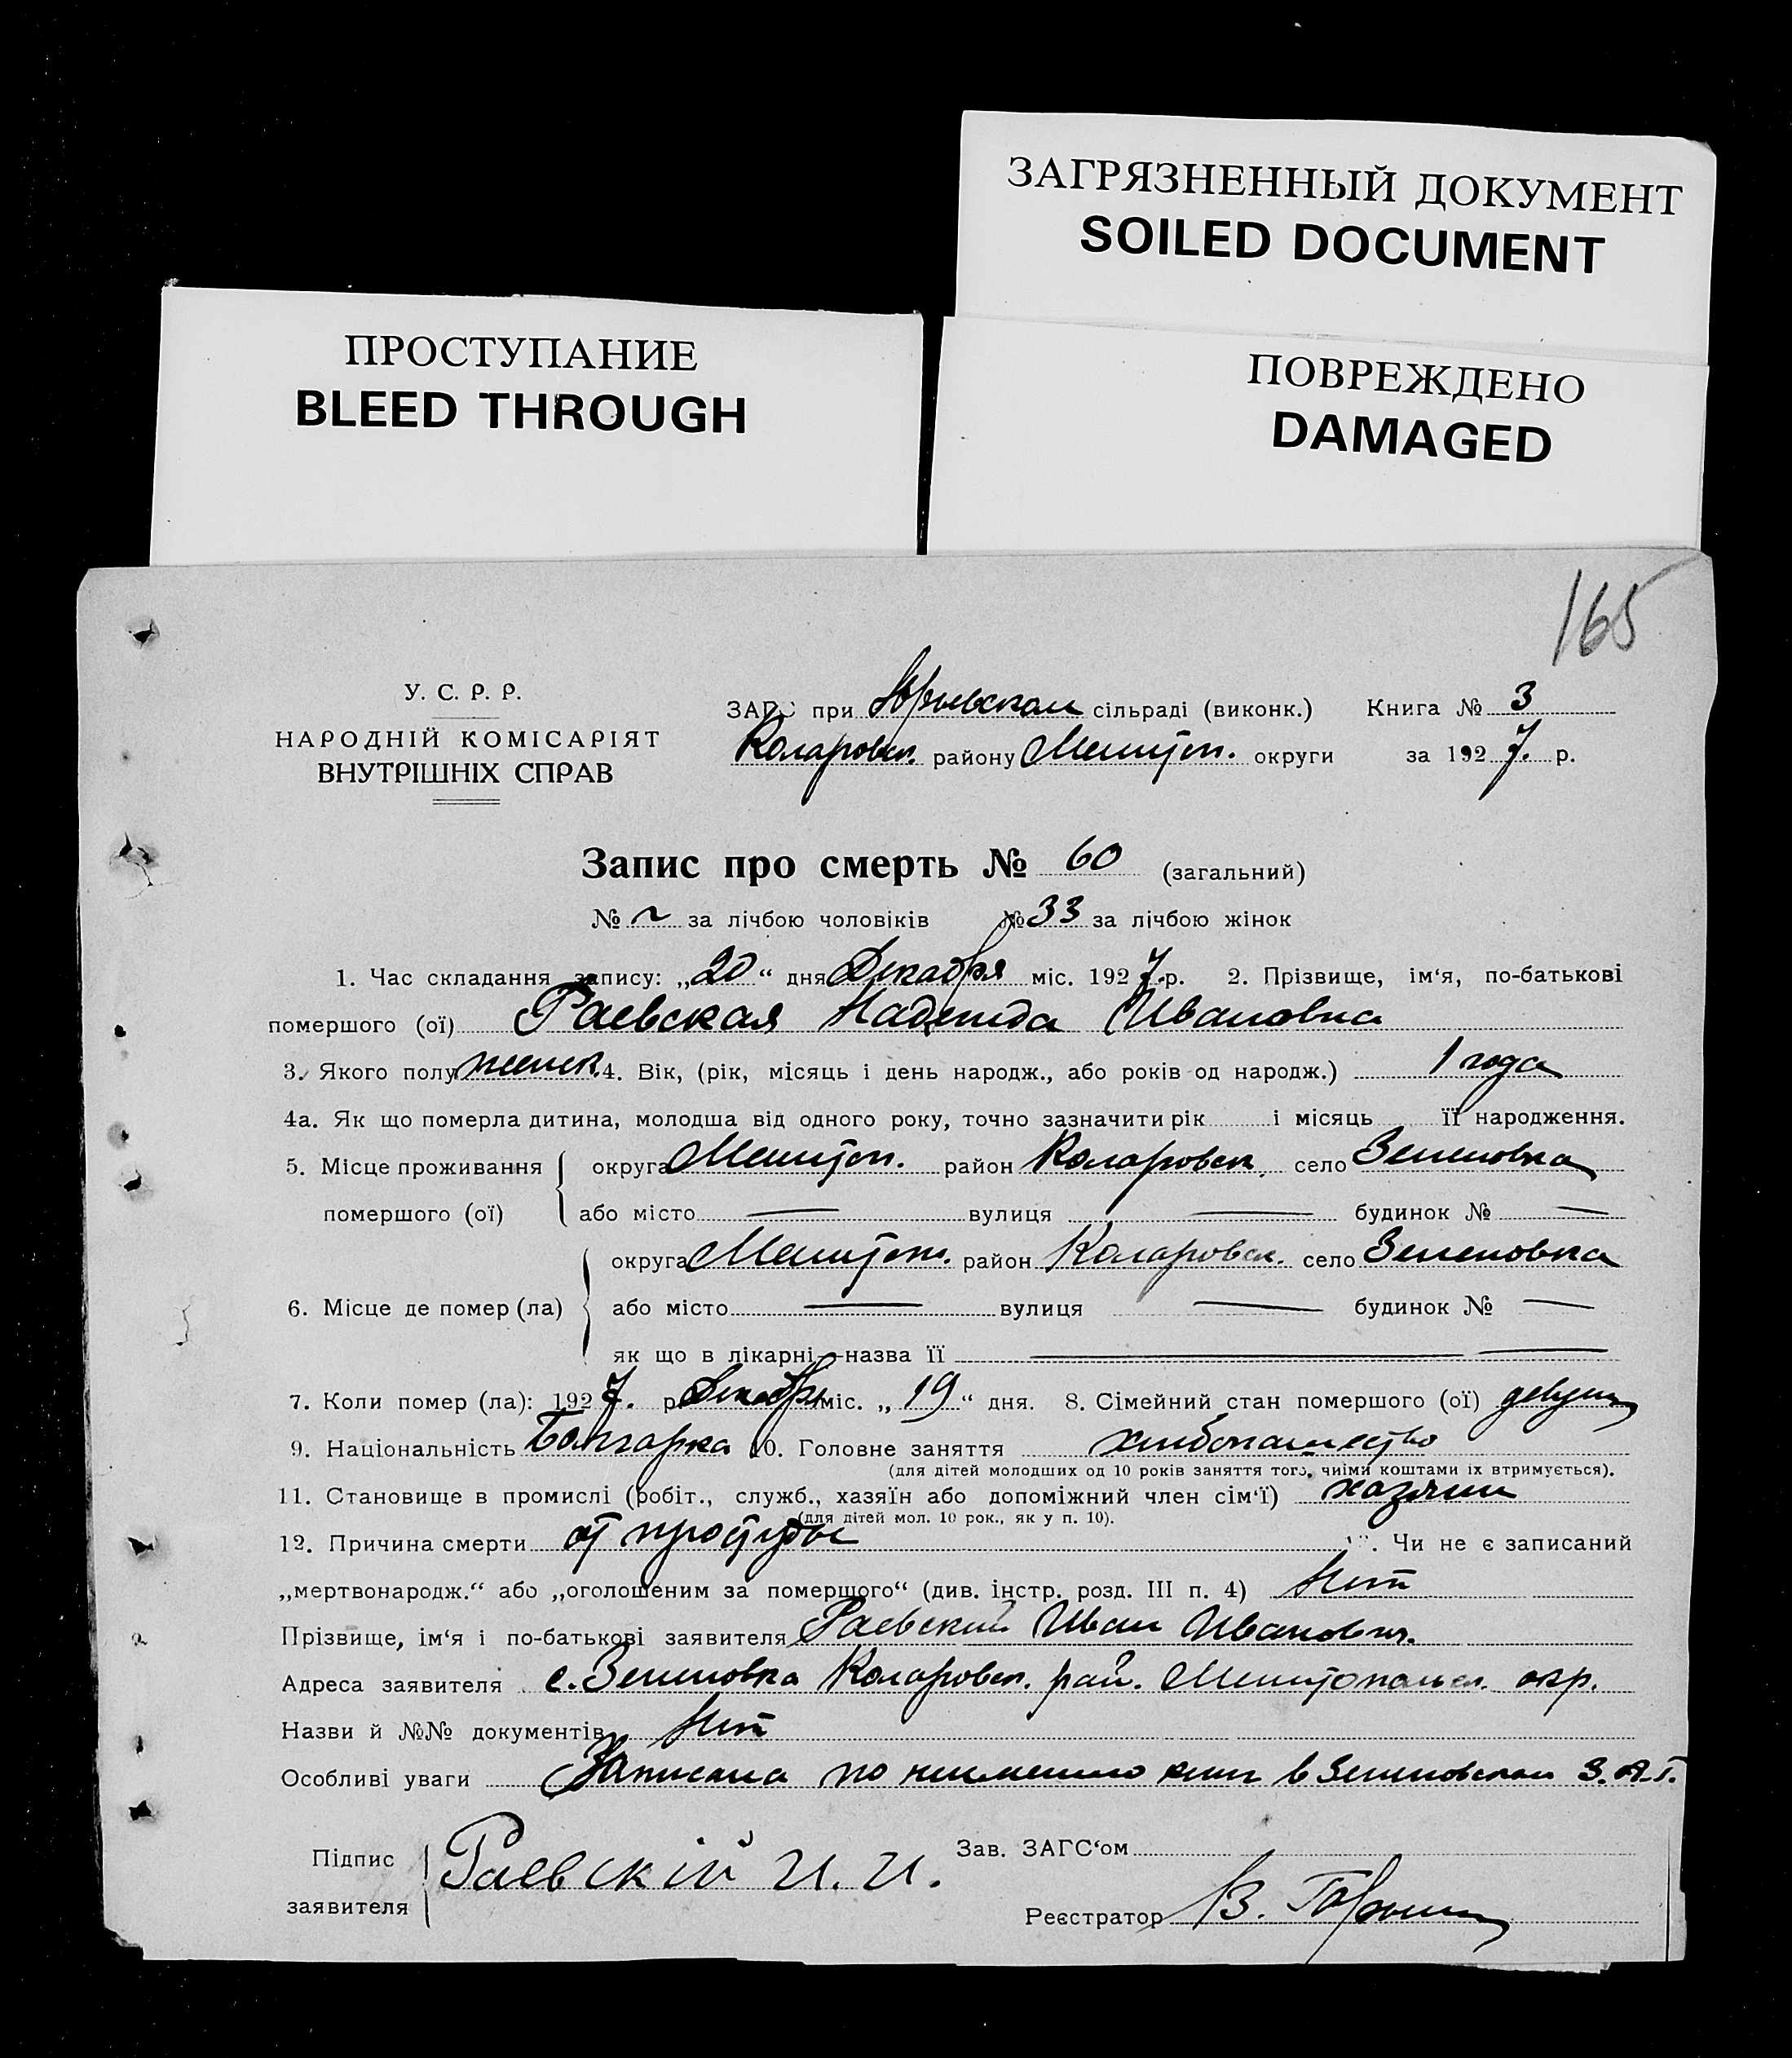 ЗАГРЯЗНЕННЫЙ ДОКУМЕНТ
SOILED DOCUMENT
ПРОСТУПАНИЕ
BLEED THROUGH
ПОВРЕЖДЕНО
DAMAGED
165
У. С. Р. Р.
НАРОДНІЙ КОМІСАРІЯТ
ВНУТРІШНІХ СПРАВ
ЗАГС при Юрьевском сільраді (виконк.) Книга № 3
Коларовск. району Мелитоп. округи за 1927. р.
Запис про смерть № 60 (загальний)
№ за лічбою чоловіків № 33 за лічбою жінок
1. Час складання запису: „20“ дня Декабря міс. 1927.р. 2. Прізвище, ім‘я, по-батькові
помершого (ої) Раевская Надежда Ивановна
3. Якого полу женск. 4. Вік, (рік, місяць і день народж., або років од народж.) 1 года
4а. Як що померла дитина, молодша від одного року, точно зазначити рік і місяць її народження.
5. Місце проживання округа Мелитоп. район Коларовск. село Зеленовка
помершого (ої) або місто — вулиця — будинок № —
округа Мелитоп. район Коларовск. село Зеленовка
6. Місце де помер (ла) або місто — вулиця — будинок № —
як що в лікарні—назва її —
7. Коли помер (ла): 1927. р. Декабря міс. „19“ дня. 8. Сімейний стан помершого (ої) девушк
9. Національність Болгарка 10. Головне заняття хлебопашество
(для дітей молодших од 10 років заняття того, чиїми коштами їх втримується).
11. Становище в промислі (робіт., служб., хазяїн або допоміжний член сім‘ї) хазяин
(для дітей мол. 10 рок., як у п. 10).
12. Причина смерти от простуды . Чи не є записаний
„мертвонародж.“ або „оголошеним за помершого“ (див. інстр. розд. III п. 4) Нет
Прізвище, ім‘я і по-батькові заявителя Раевский Иван Иванович.
Адреса заявителя с. Зеленовка Коларовск. рай. Мелитопольск. окр.
Назви й №№ документів Нет
Особливі уваги Записана по неимению книг в Зеленовском З.А.Г.
Підпис
заявителя Раевскій И. И.
Зав. ЗАГС‘ом
Реєстратор В.